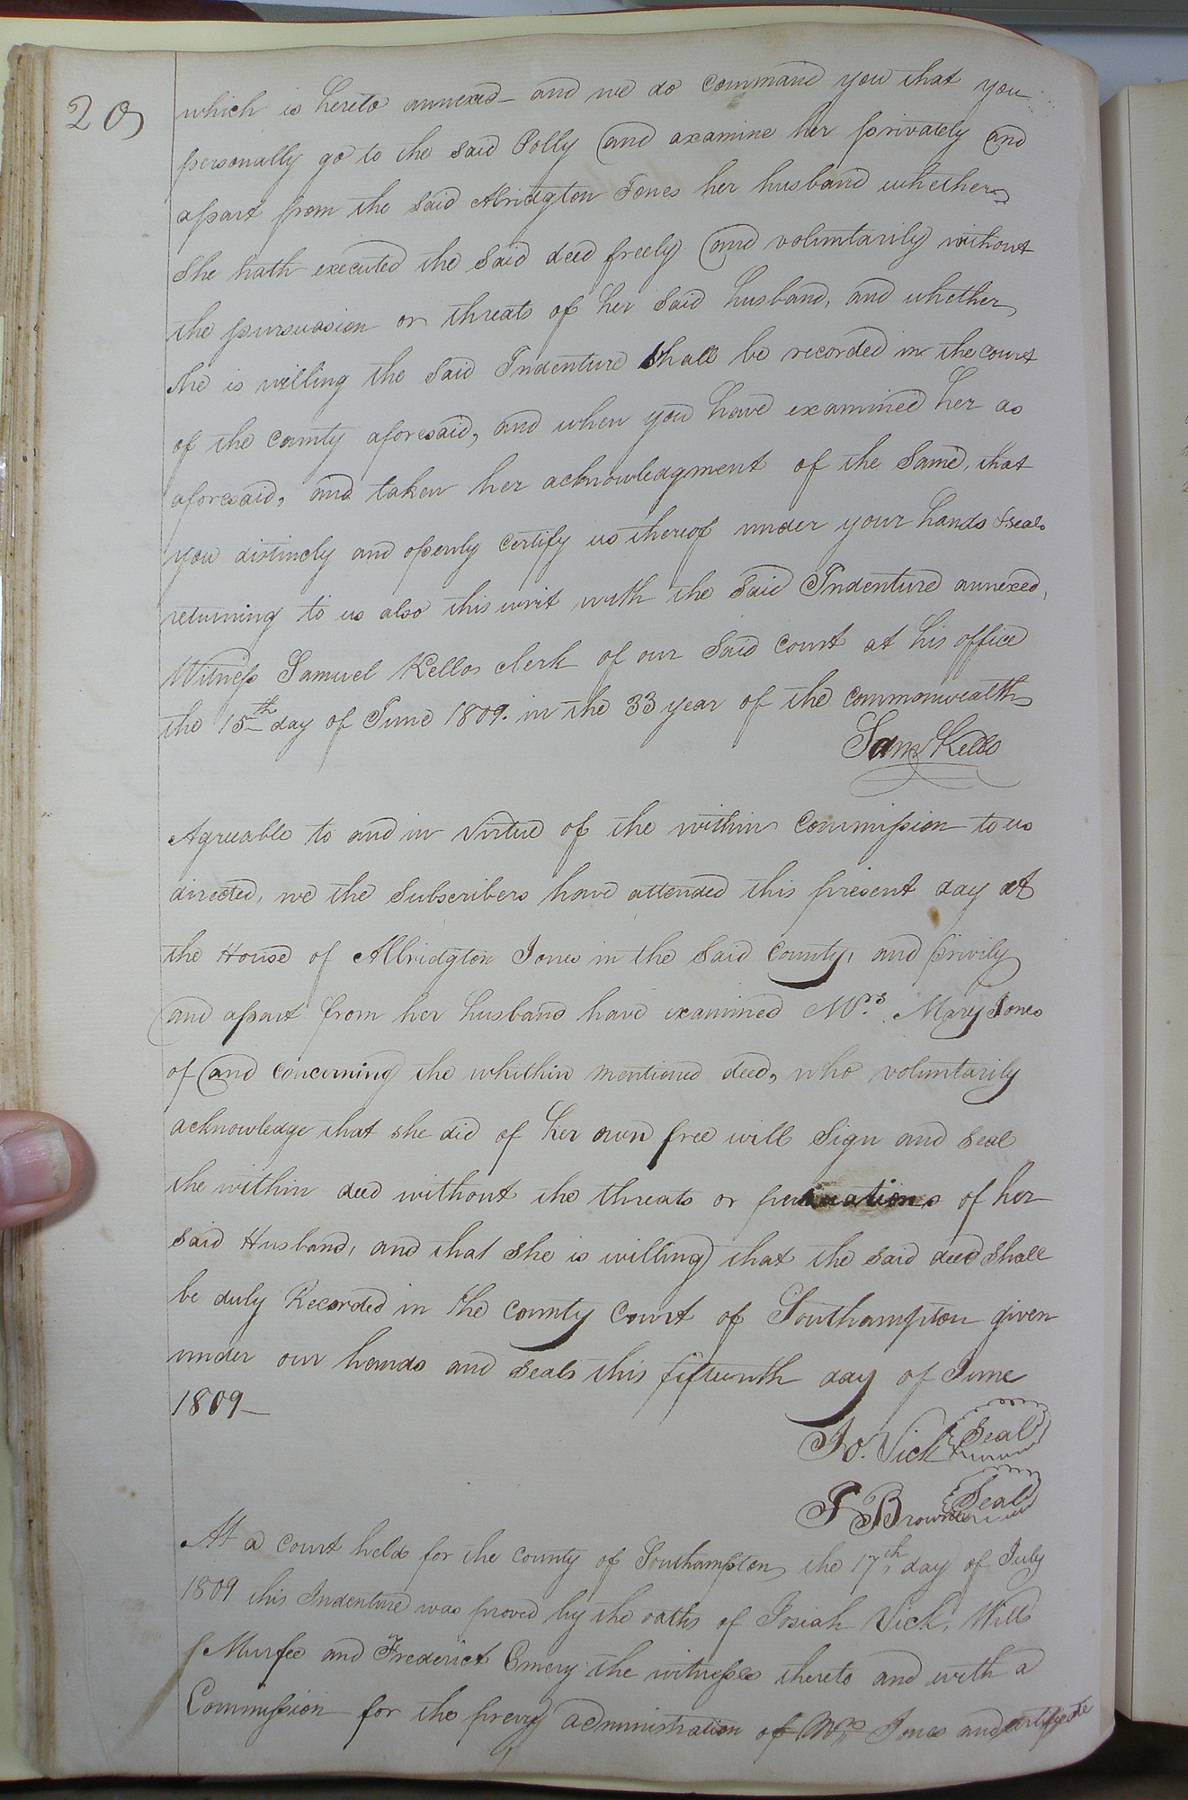 20
which is hereto annexed - and we do command you that you
personally go to the said Polly and examine her privately and
apart from the said Abridgton Jones her husband whether
she hath executed the said deed freely and voluntarily without
the pursuasion or threats of her said husband, and whether
she is willing the said Indenture shall be recorded in the court
of the county aforesaid, and when you have examined her as
aforesaid, and taken her acknowledgment of the same, that
you distincly and openly certify us thereof under your hands & seals
returning to us also this writ with the said Indenture annexed,
Witness Samuel Kello clerk of our said court at his office
the 15th day of June 1809. in the 33 year of the commonwealth
Saml Kello
Agreeable to and in Virtue of the within Commission to us
directed, we the subscribers have attended this present day at
the House of Albridgton Jones in the said county, and privily
and apart from her husband have examined Mrs. Mary Jones
of and concerning the whithin mentioned deed, who voluntarily
acknowledge that she did of her own free will sign and seal
the within deed without the threats or persuations of her
said Husband, and that she is willing that the said deed shall
be duly Recorded in the county court of Southampton given
under our hands and seals this fifteenth day of June
1809 -
Jo. Vick Seal
J Browne Seal
At a court held for the county of Southampton the 17th, day of July
1809 this Indenture was proved by the oaths of Josiah Vick, Will
Murfee and Frederick Emery the witnesses thereto and with a
Commission for the privy administration of Mrs Jones and certificate